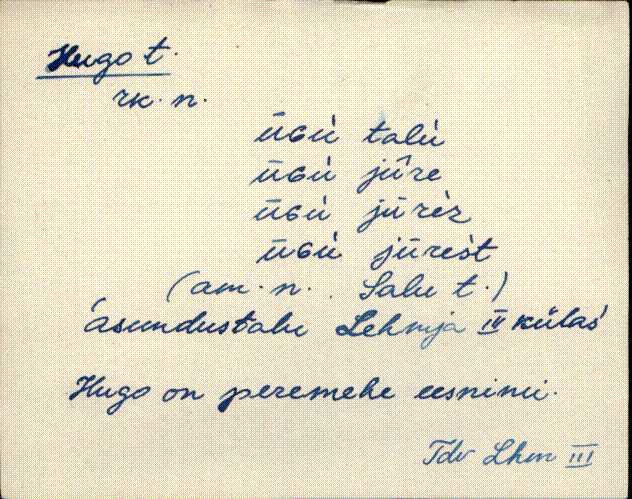 Hugo t.
rk. n.
ūGù talù
ūGù jūre
ūGù jūrèz
ūGù jūrèst
(am. n. Salu t.)
asundustalu Lehmja IV külas
Hugo on peremehe eesnimi.
Tdv Lhm III